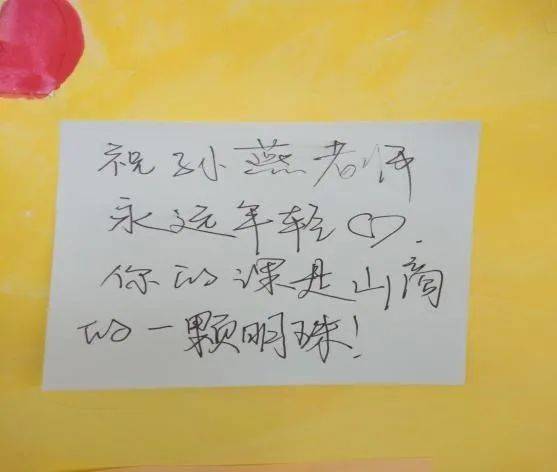 祝孙燕老师
永远年轻♡.
你的课是山商
的一颗明珠!